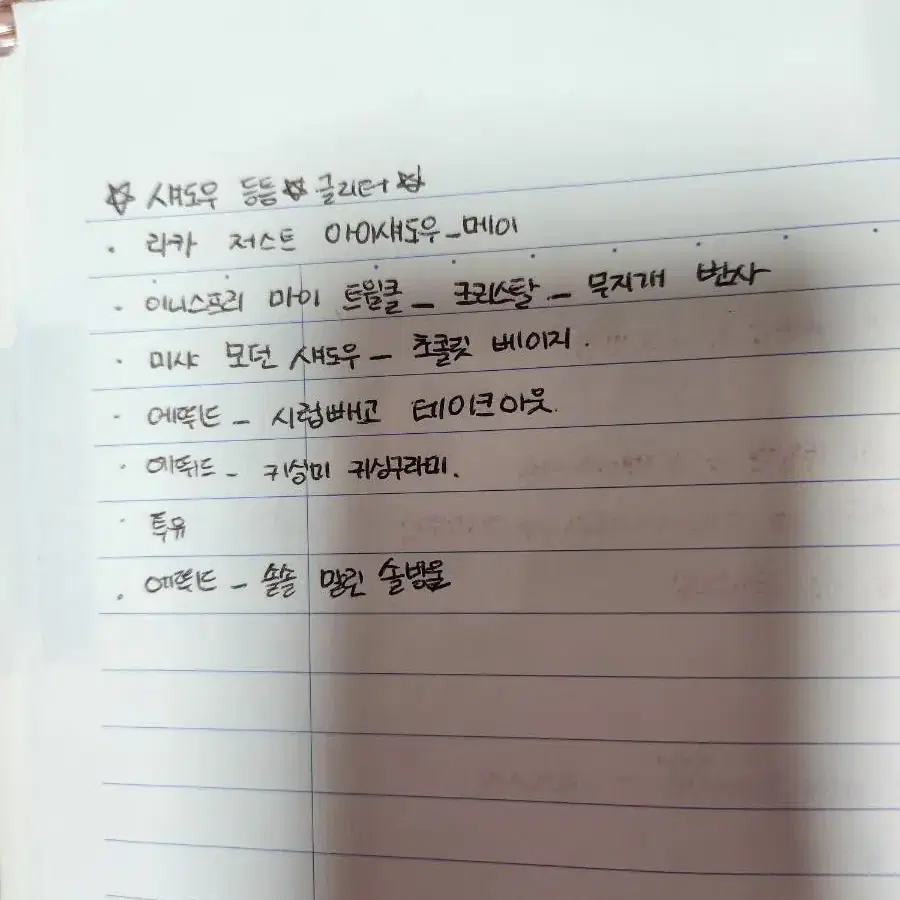 ☆ 섀도우 등등 ☆ 글리터 ☆
· 라카 저스트 아이섀도우_메이
· 이니스프리 마이 트윙클_크리스탈_무지개 반사
· 미샤 모던 섀도우_초콜릿 베이지.
· 에뛰드_시럽빼고 테이크아웃.
· 에뛰드_귀싱미 귀싱구라미.
· 투유
· 에뛰드_솔솔 말린 솔방울